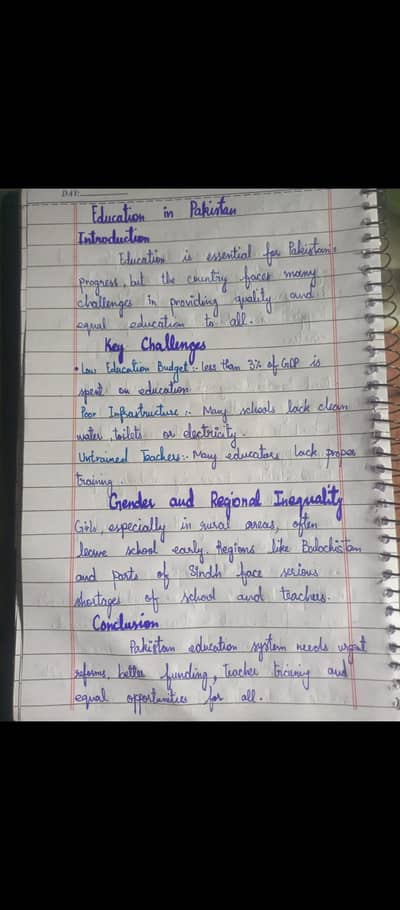 DAY:
Education in Pakistan
Introduction
Education is essential for Pakistan's
progress, but the country faces many
challenges in providing quality and
equal education to all...
Key Challenges
• Low Education Budget :- less than 3% of GDP is
spent on education
Poor Infrastructure :- Many schools lack clean
water, toilets or electricity.
Untrained Teachers:- Many educators lack proper
training.
Gender and Regional Inequality
Girls, especially in rural areas, often
leave school early. Regions like Balochistan
and parts of Sindh face serious
shortages of school and teachers.
Conclusion
Pakistan education system needs urgent
reforms, better funding, Teacher training and
equal opportunities for all.